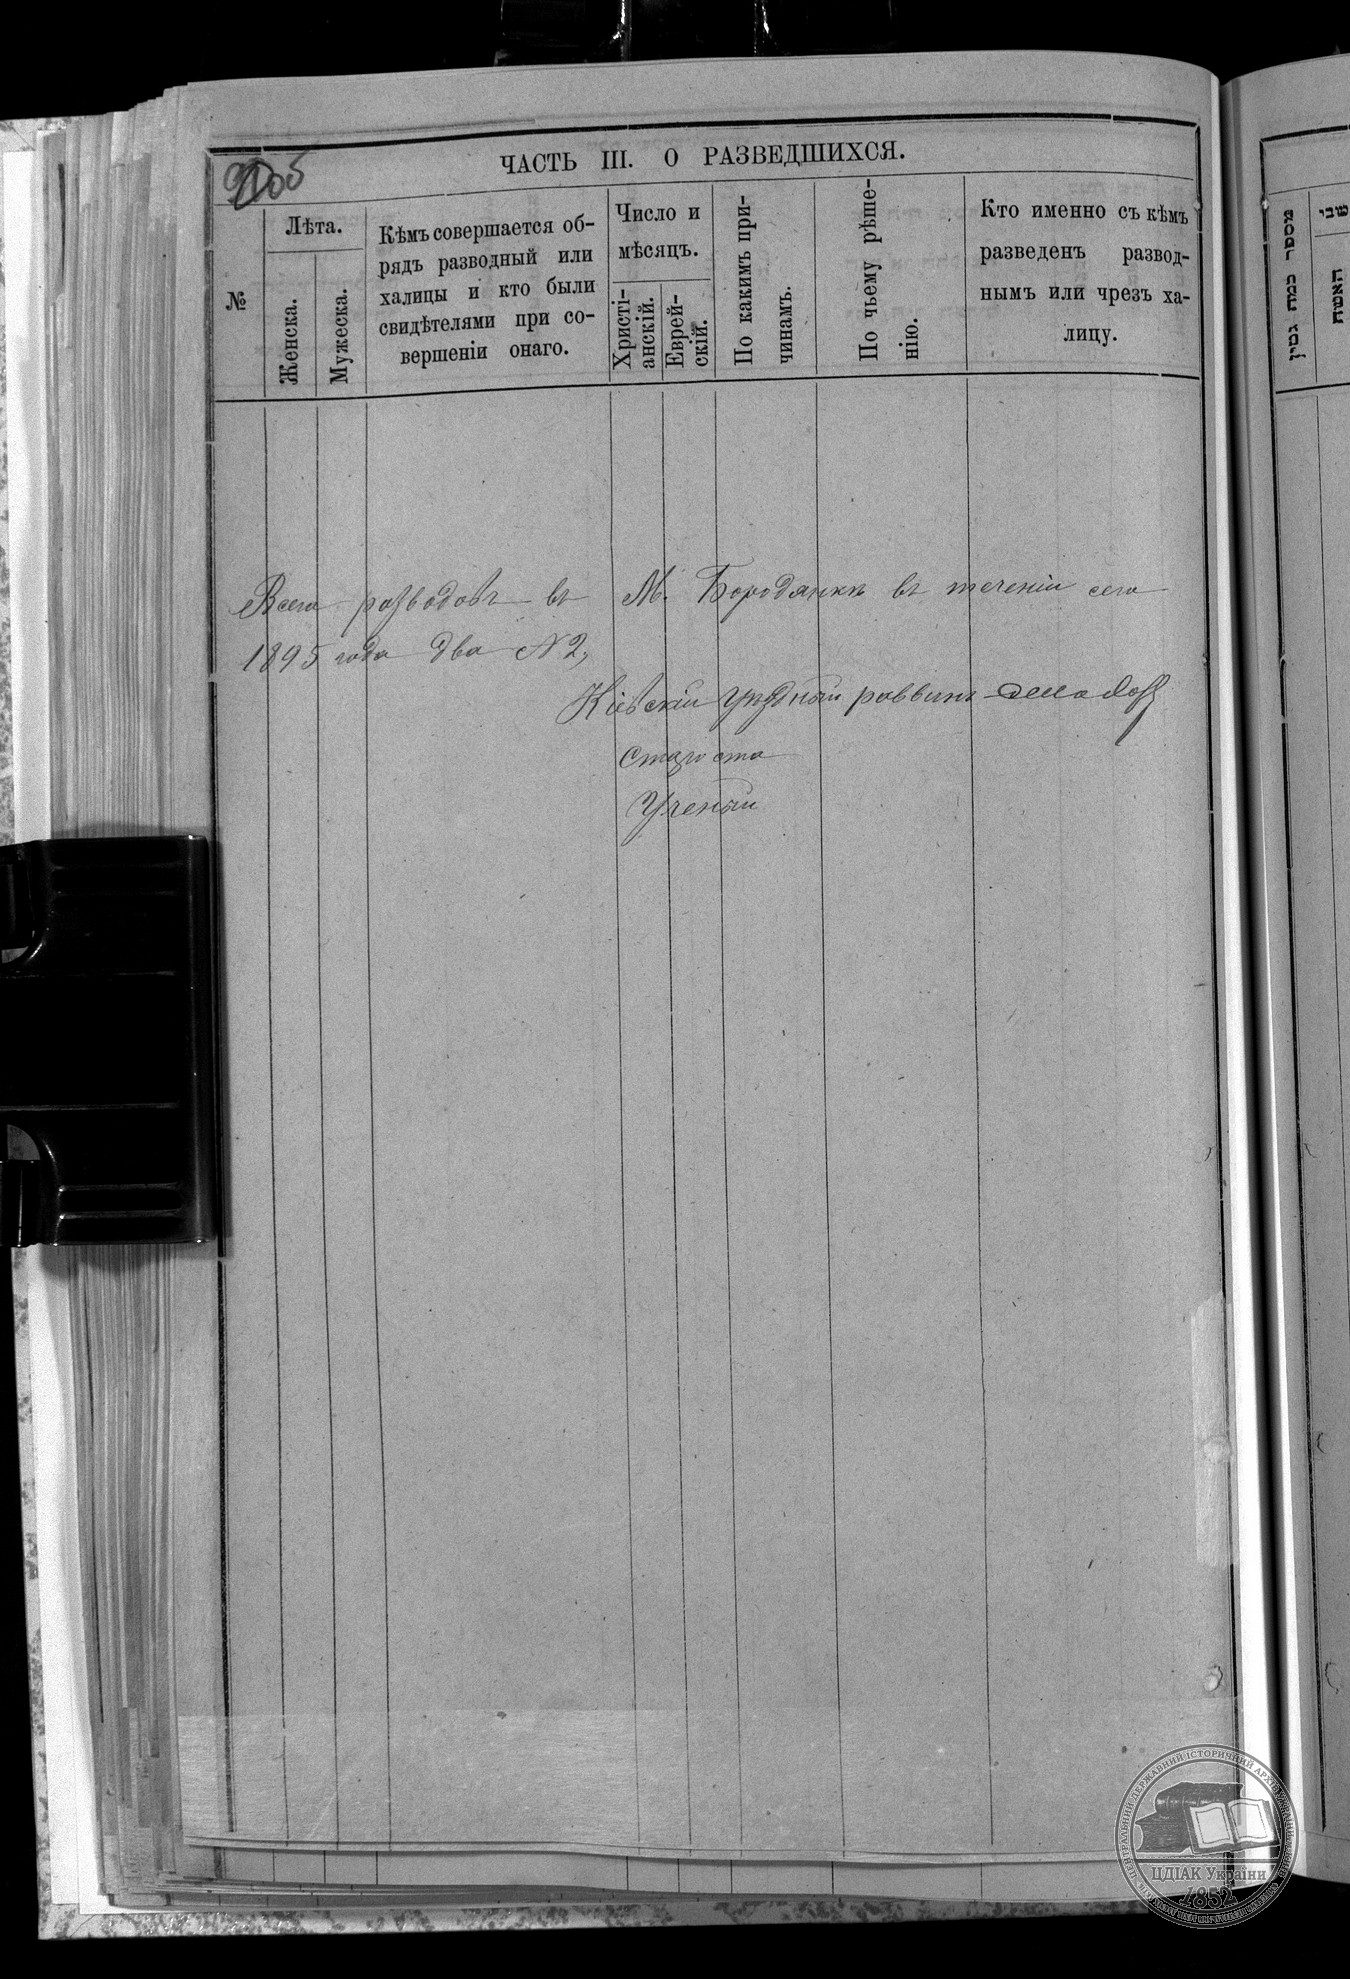 205
ЧАСТЬ III. О РАЗВЕДШИХСЯ.
№
Лѣта.
Женска.
Мужеска.
Кѣмъ совершается об-
рядъ разводный или
халицы и кто были
свидѣтелями при со-
вершеніи онаго.
Число и
мѣсяцъ.
Христі-
анскій.
Еврей-
скій.
По какимъ при-
чинамъ.
По чьему рѣше-
нію.
Кто именно съ кѣмъ
разведенъ развод-
нымъ или чрезъ ха-
лицу.
Всего разводовъ въ М. Бородянкѣ въ теченіи сего
1895 года два N 2,
Кіевскій уѣздный раввинъ
Староста
Ученый
מספר כמה גטין
שני
האשה
ЦЕНТРАЛЬНИЙ ДЕРЖАВНИЙ ІСТОРИЧНИЙ АРХІВ УКРАЇНИ
ЦДІАК України
1852